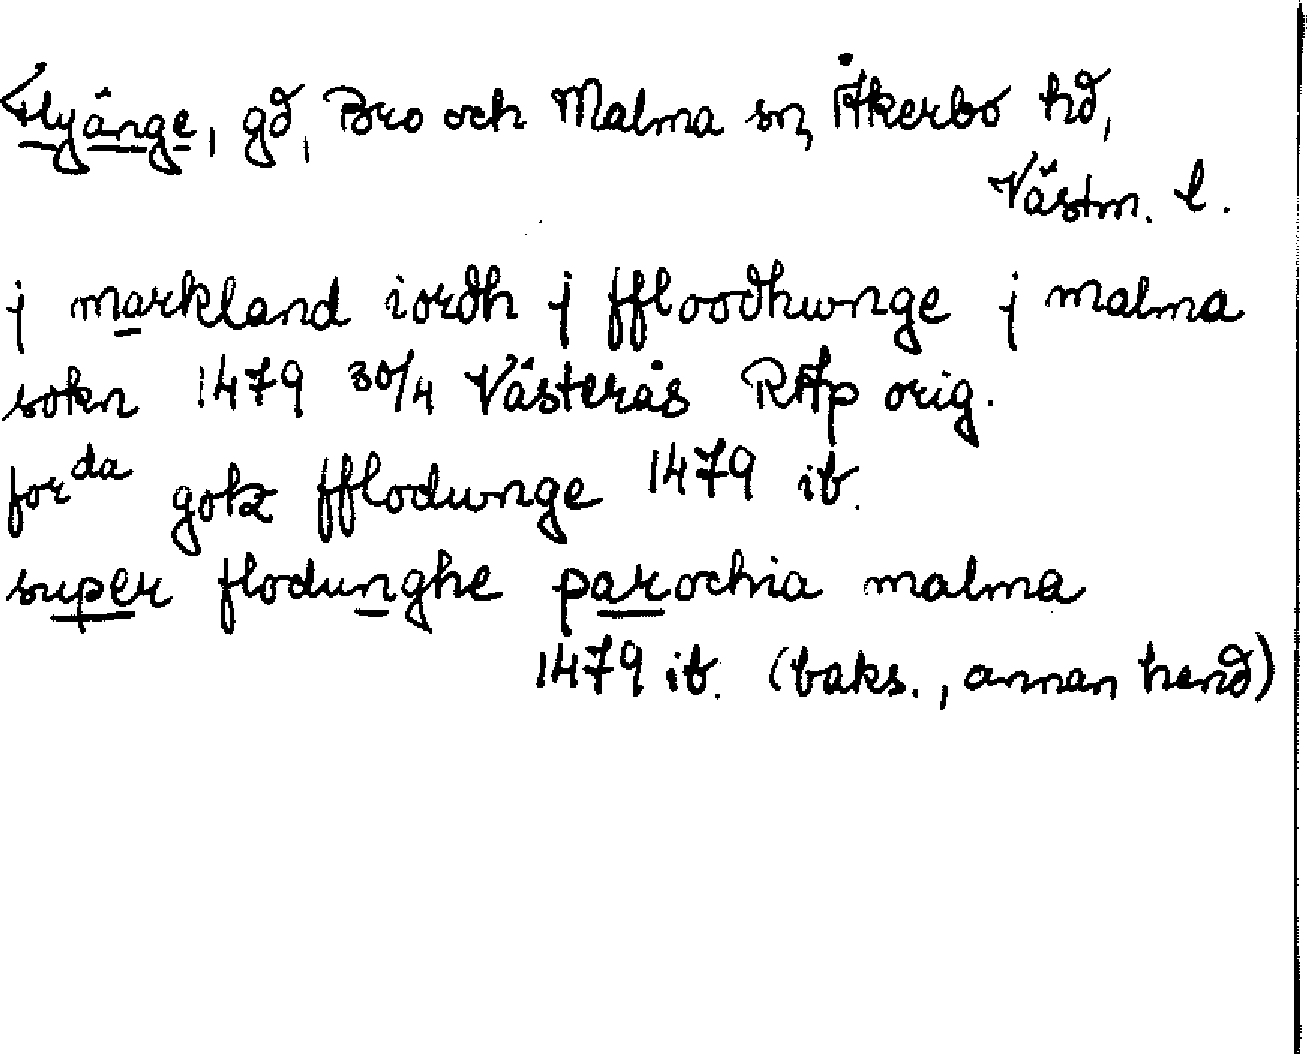 Flyänge, gd, Bro och Malma sn, Åkerbo hd,
Västm. l.
j markland iordh j ffloodhwnge j malma
sokn 1479 30/4 Västerås RAp orig.
for da gotz fflodwnge 1479 ib.
super flodunghe parochia malma
1479 ib. (baks., annan hand)